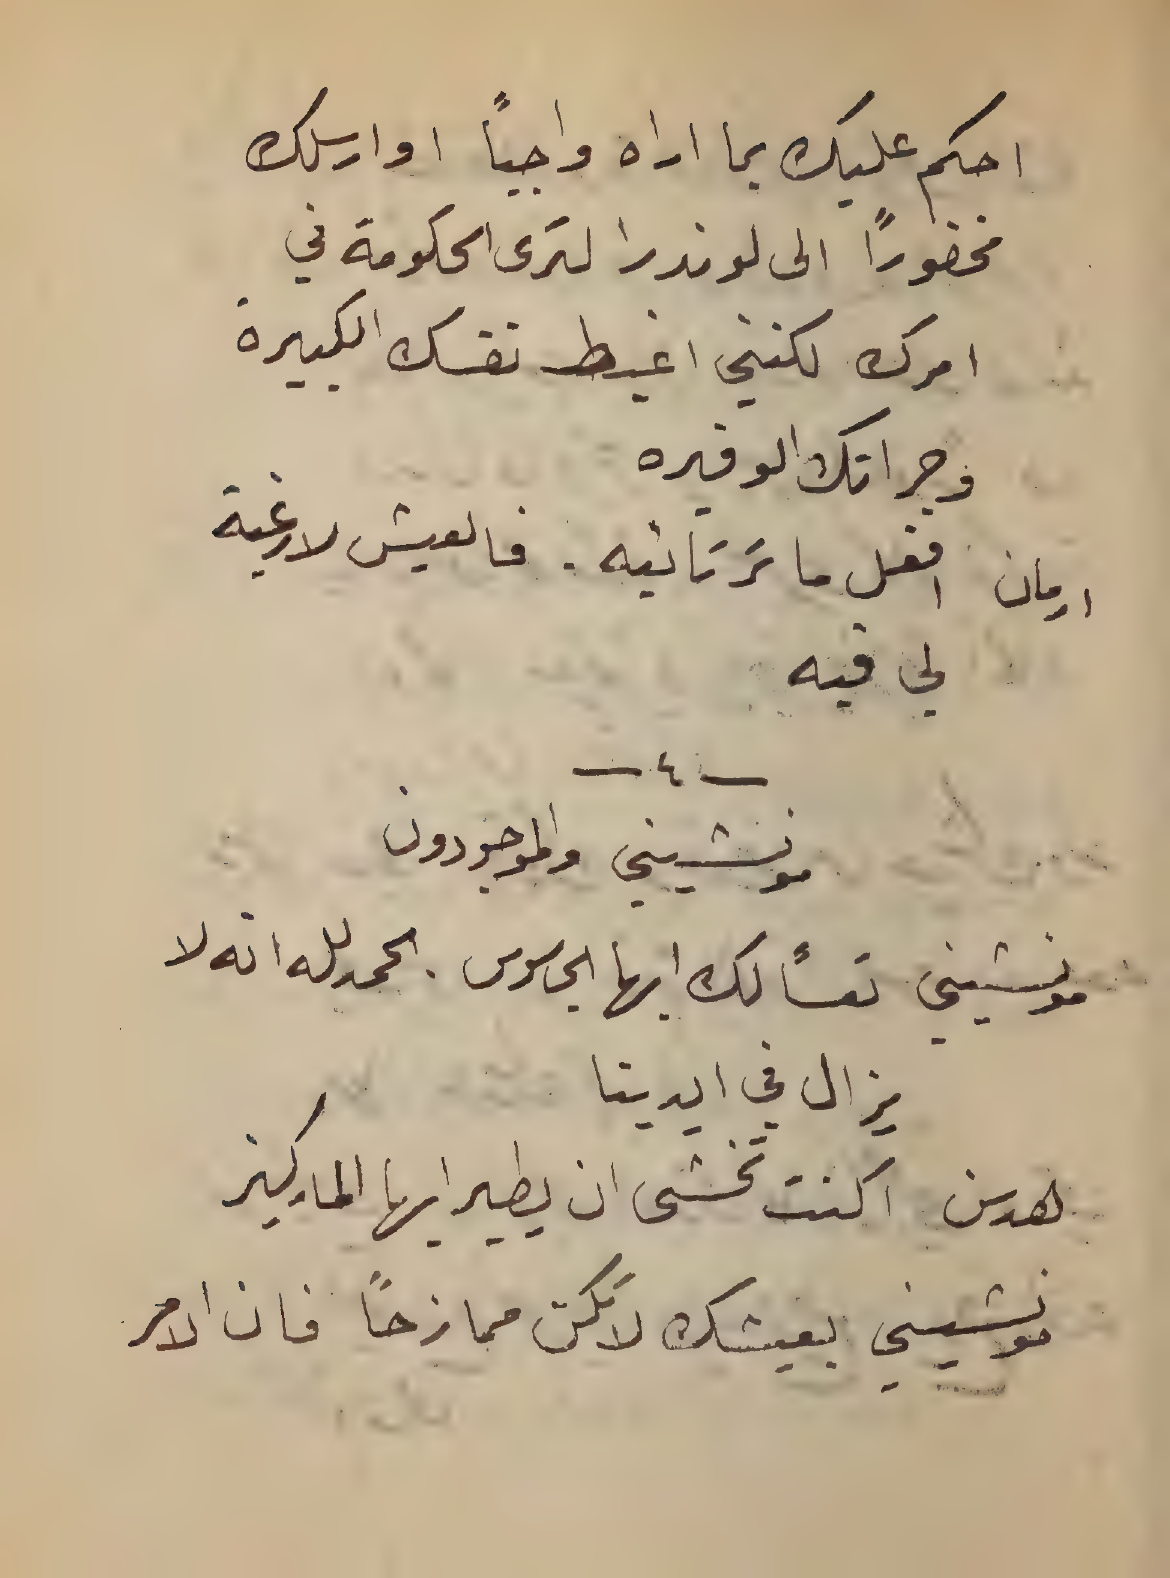 احكم عليك بما اراه واجباً او ارسلك
مخفوراً الى لوندرا لترى الحكومة في
امرك لكنني اغبط نفسك الكبيرة
وجراتك الوفيره
ارمان افعل ما تَرتَائيه . فالعيش لا رغبة
لي فيه
— ٤ —
مونشيني والموجودون
مونشيني تعساً لك ايها الجاسوس . الحمد لله انه لا
يزال في ايدينا
هدسن اكنت تخشى ان يطير ايها المركيز
مونشيني بعيشك لا تَكن ممازحاً فان الامر